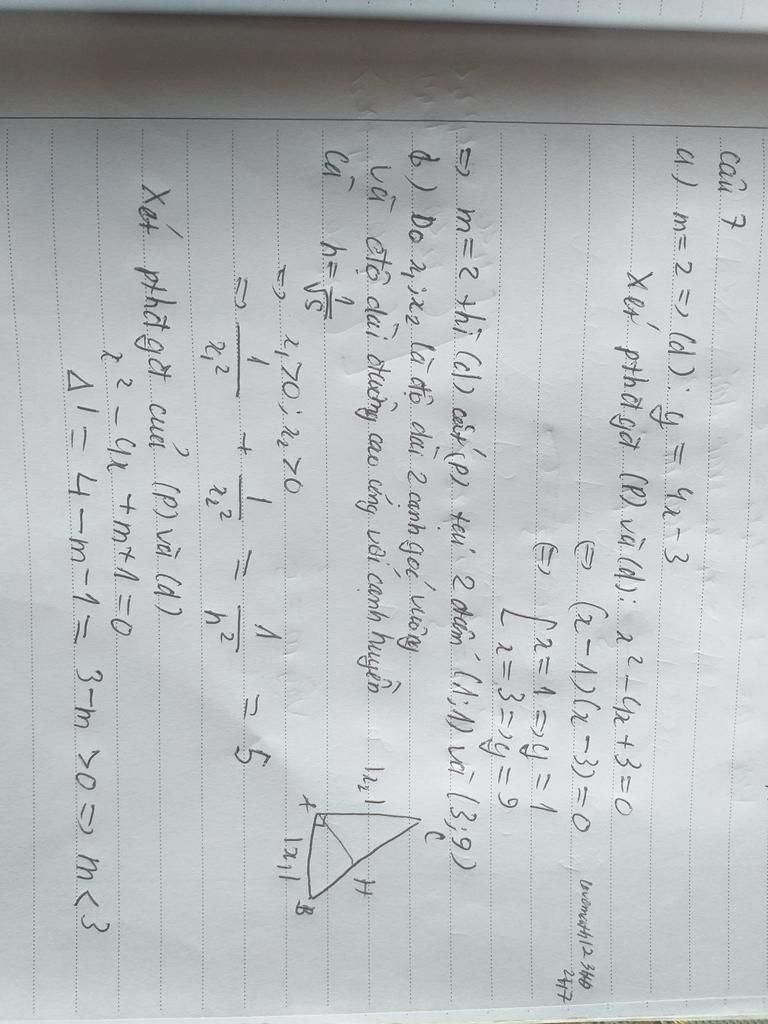 câu 7
a) m = 2 => (d): y = 4x - 3
Xét pthđgđ (P) và (d): x² - 4x + 3 = 0
<=> (x - 1)(x - 3) = 0
<=> [ x = 1 => y = 1
x = 3 => y = 9
=> m = 2 thì (d) cắt (P) tại 2 điểm (1;1) và (3;9)
b) Do x₁; x₂ là độ dài 2 cạnh góc vuông
và độ dài đường cao ứng với cạnh huyền
là h = 1/√5
=> x₁ > 0; x₂ > 0
=> 1/x₁² + 1/x₂² = 1/h² = 5
C
|x₂|
H
A
|x₁|
B
Xét pthđgđ của (P) và (d)
x² - 4x + m + 1 = 0
Δ' = 4 - m - 1 = 3 - m > 0 => m < 3